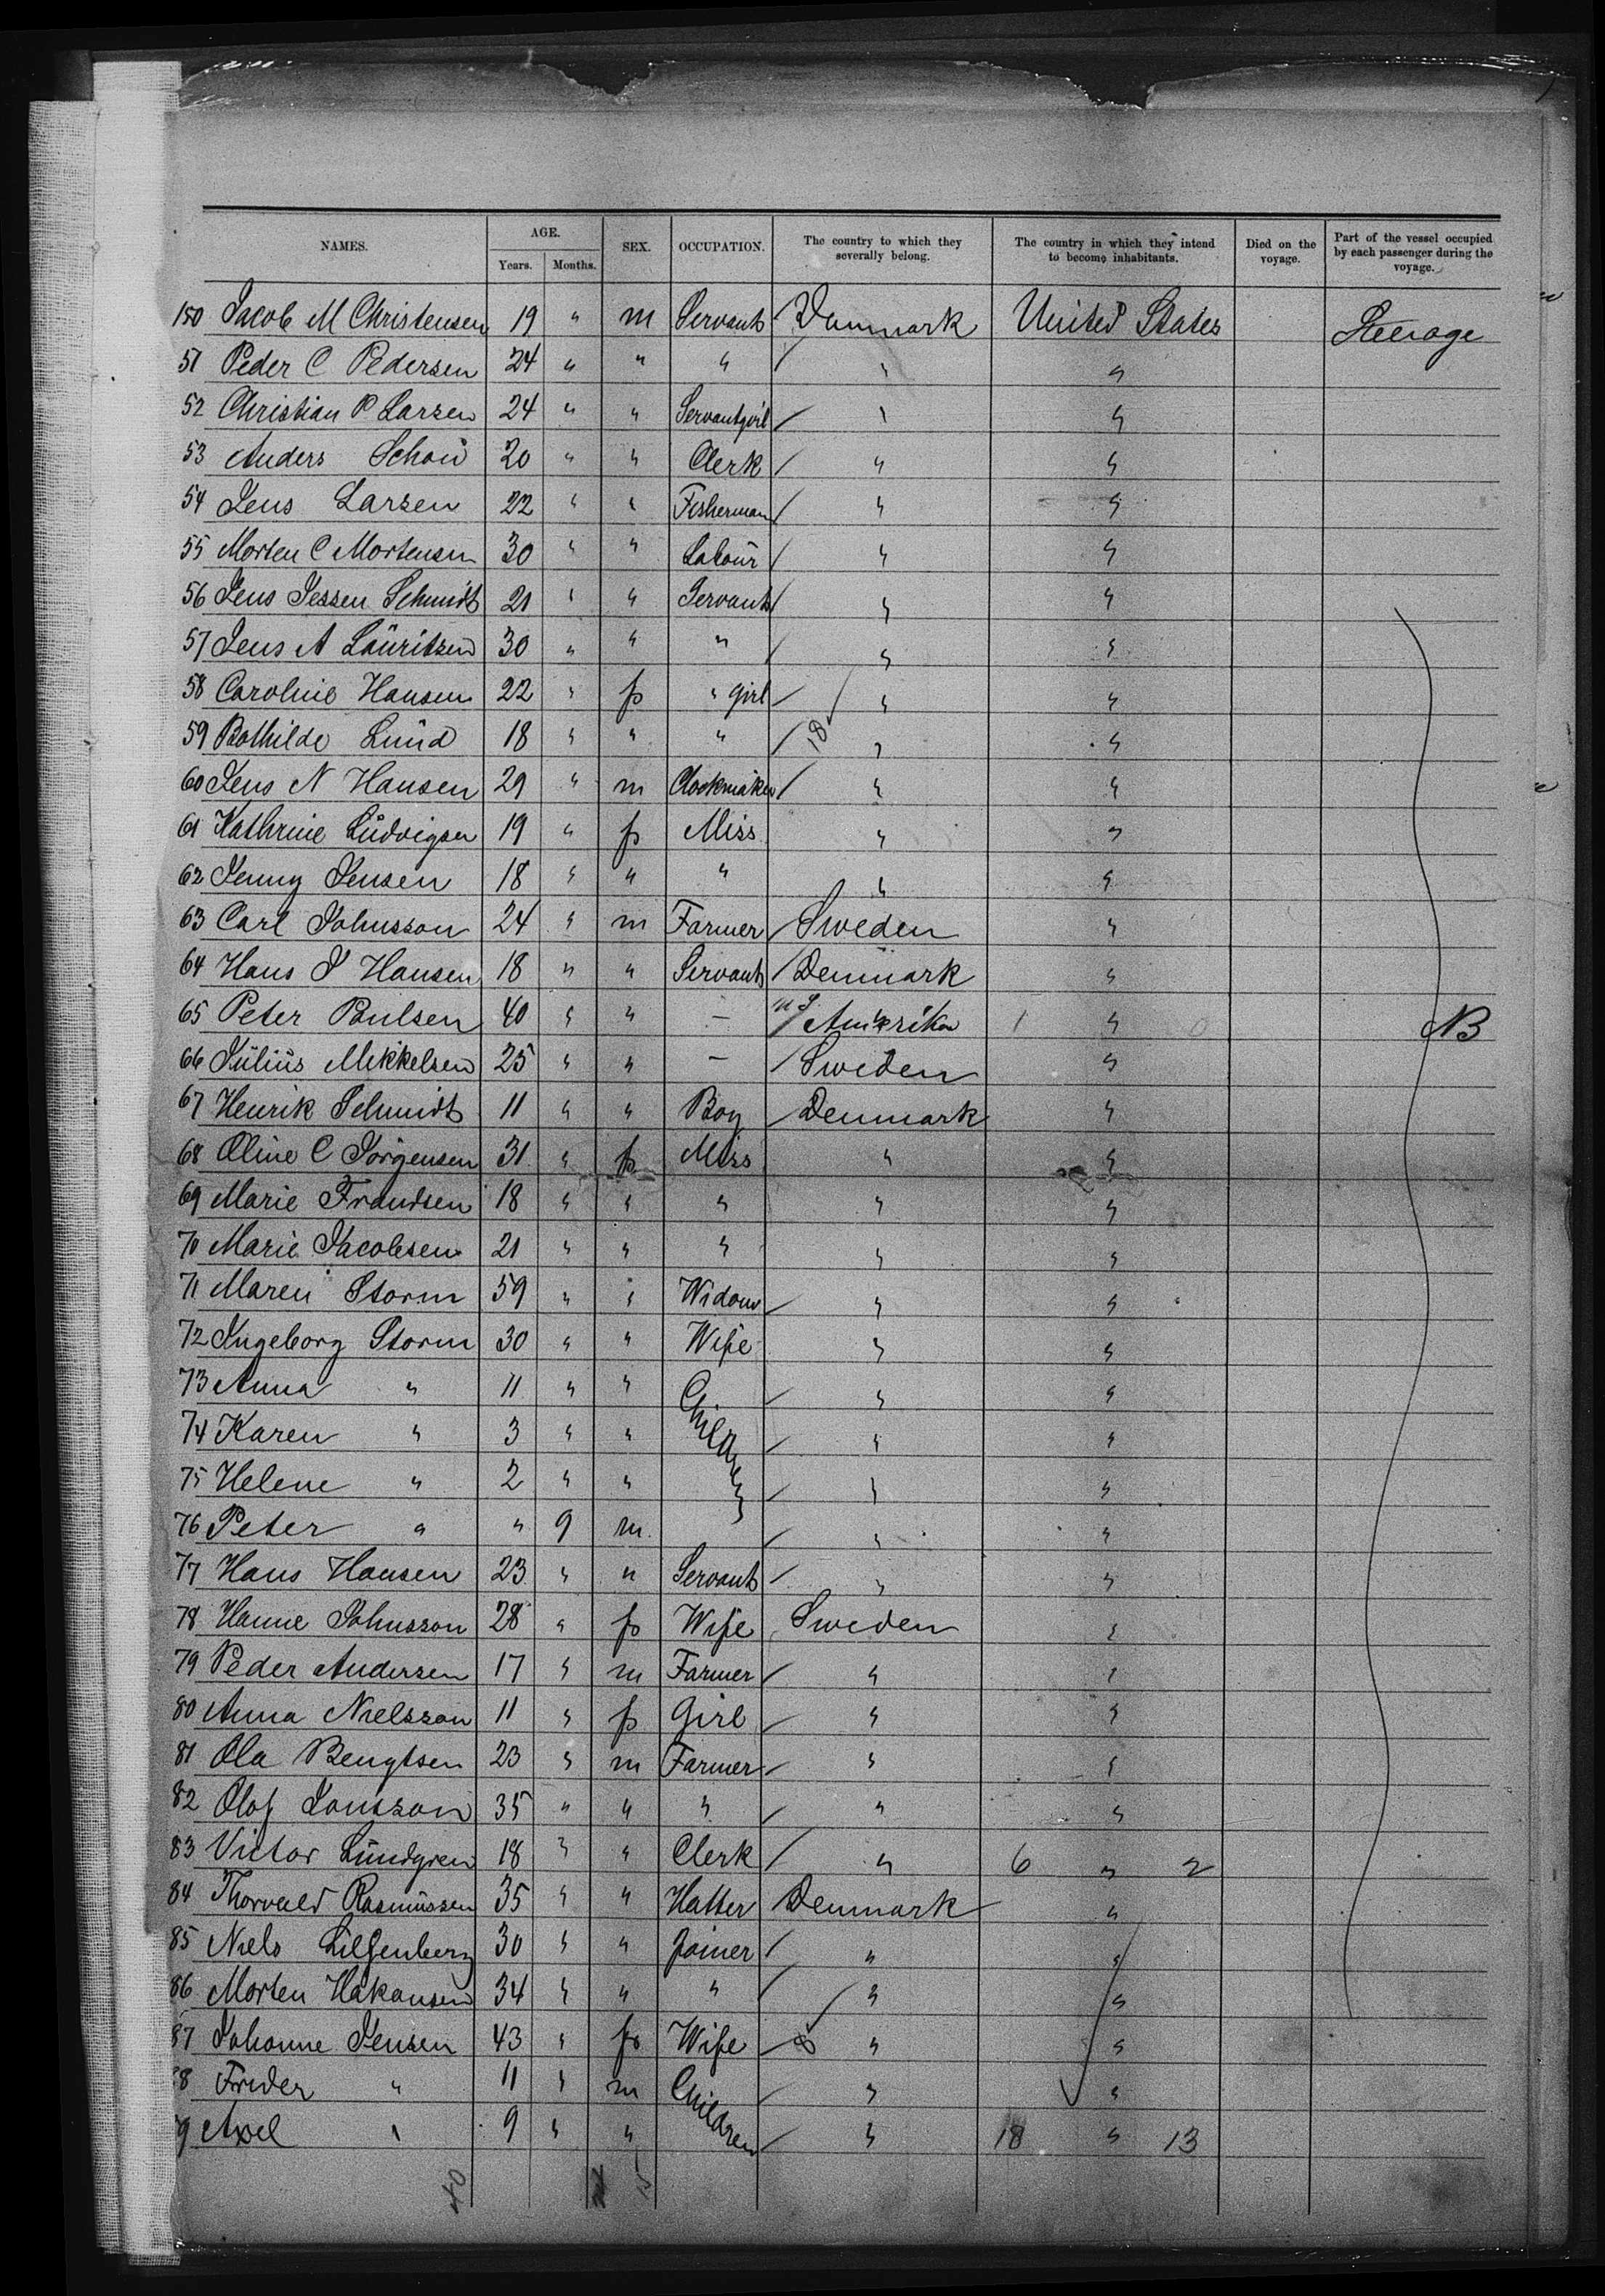 NAMES. AGE. SEX. OCCUPATION. The country to which they severally belong. The country in which they intend to become inhabitants. Died on the voyage. Part of the vessel occupied by each passenger during the voyage.
Years. Months.
150 Jacob M Christensen 19 " m Servant Danmark United States Steerage
51 Peder C Pedersen 24 " " " / " "
52 Christian P Larsen 24 " " Servantgirl / " "
53 Anders Schou 20 " " Clerk / " "
54 Jens Larsen 22 " " Fisherman / " "
55 Morten C Mortensen 30 " " Labour / " "
56 Jens Jessen Schmidt 21 " " Servant / " "
57 Jens A Lauritzen 30 " " " / " "
58 Caroline Hansen 22 " f " girl / " "
59 Bothilde Lund 18 " " " / 18 " "
60 Jens N Hansen 29 " m Clockmaker / " "
61 Kathrine Ludvigsen 19 " f Miss " "
62 Jenny Jensen 18 " " " " "
63 Carl Johnsson 24 " m Farmer / Sweden "
64 Hans J Hansen 18 " " Servant / Denmark "
65 Peter Poulsen 40 " " — US / Amerika 1 " 0 NB
66 Julius Mikkelsen 25 " " — / Sweden "
67 Henrik Schmidt 11 " " Boy / Denmark "
68 Oline C Jörgensen 31 " f Miss " "
69 Marie Frandsen 18 " " " " "
70 Marie Jacobsen 21 " " " " "
71 Maren Storm 59 " " Widow / " "
72 Ingeborg Storm 30 " " Wife " "
73 Anna " 11 " " Children / " "
74 Karen " 3 " " / " "
75 Helene " 2 " " / " "
76 Peter " " 9 m. / " "
77 Hans Hansen 23 " " Servant / " "
78 Hanne Johnsson 28 " f Wife Sweden "
79 Peder Andersen 17 " m Farmer / " "
80 Anna Nielsson 11 " f Girl / " "
81 Ola Bengtsen 23 " m Farmer / " "
82 Olof Jonsson 35 " " " / " "
83 Victor Lundgren 18 " " Clerk / " 6 " 2
84 Thorvald Rasmussen 35 " " Hatter Denmark "
85 Niels Liljenberg 30 " " Joiner / " "
86 Morten Hakansen 34 " " " / " "
87 Johanne Jensen 43 " f Wife 8 " "
88 Frider " 11 " m Children / " "
9 Axel " 9 " " / " 18 " 13
40 15